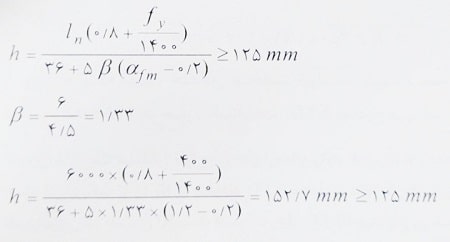 h = \frac{l_n(۰/۸ + \frac{f_y}{۱۴۰۰})}{۳۶ + ۵ β (α_{fm} − ۰/۲)} ≥ ۱۲۵ mm
β = \frac{۶}{۴/۵} = ۱/۳۳
h = \frac{۶۰۰۰ × (۰/۸ + \frac{۴۰۰}{۱۴۰۰})}{۳۶ + ۵ × ۱/۳۳ × (۱/۲ − ۰/۲)} = ۱۵۲/۷ mm ≥ ۱۲۵ mm